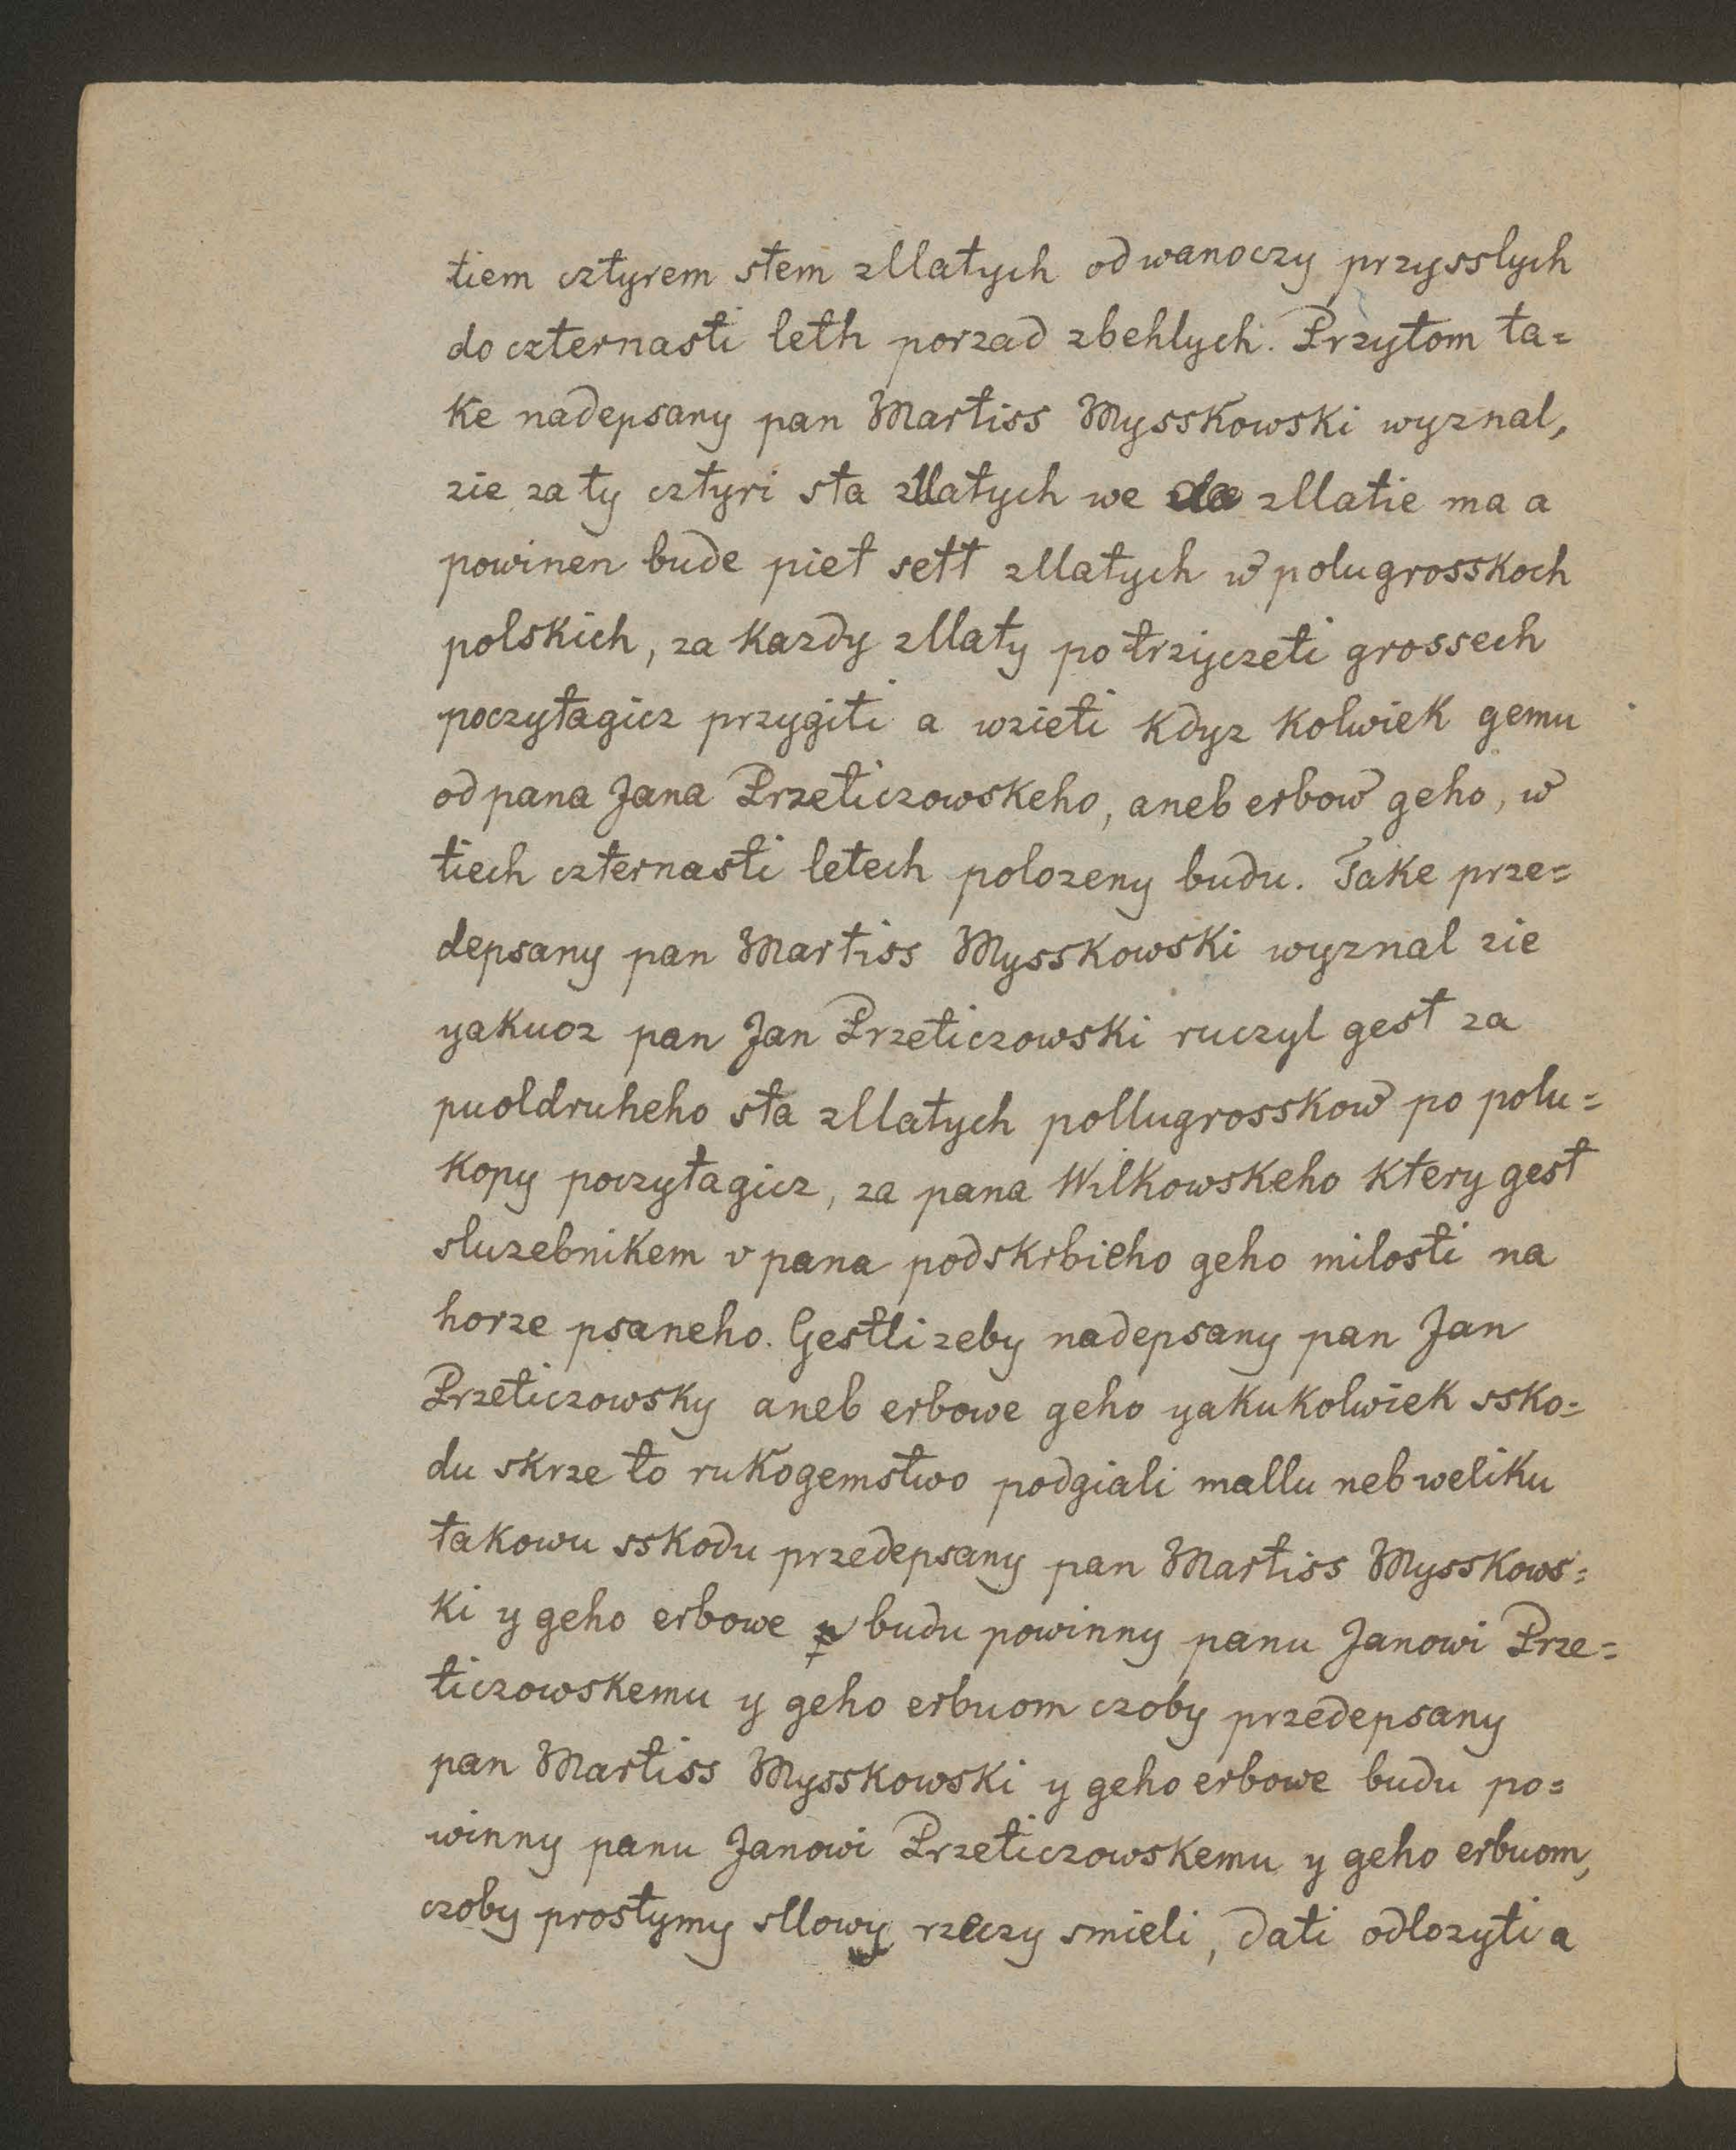 tiem cztyrem stem zllatych od wanoczy przysslych
do czternasti leth porzad zbehlych. Przytom ta=
ke nadepsany pan Martiss Mysskowski wyznal,
zie za ty cztyri sta zllatych we zllatie ma a
powinen bude piet sett zllatych w polugrosskoch
polskich, za kazdy zllaty po trzyczeti grossech
poczytagicz przygiti a wzieti kdyz kolwiek gemu
od pana Jana Przeticzowskeho, aneb erbow geho, w
tiech czternasti letech polozeny budu. Take prze=
depsany pan Martiss Mysskowski wyznal zie
yakuoz pan Jan Przeticzowski ruczyl gest za
puoldruheho sta zllatych pollugrosskow po polu=
kopy poczytagicz, za pana Wilkowskeho ktery gest
sluzebnikem v pana podskrbieho geho milosti na
horze psaneho. Gestli zeby nadepsany pan Jan
Przeticzowsky aneb erbowe geho yakukolwiek ssko=
du skrze to rukogemstwo podgiali mallu neb weliku
takowu sskodu przedepsany pan Martiss Mysskows=
ki y geho erbowe budu powinny panu Janowi Prze=
ticzowskemu y geho erbuom czoby przedepsany
pan Martiss Mysskowski y geho erbowe budu po=
winny panu Janowi Przeticzowskemu y geho erbuom,
czoby prostymy sllowy rzeczy smieli, dati odlozyti a